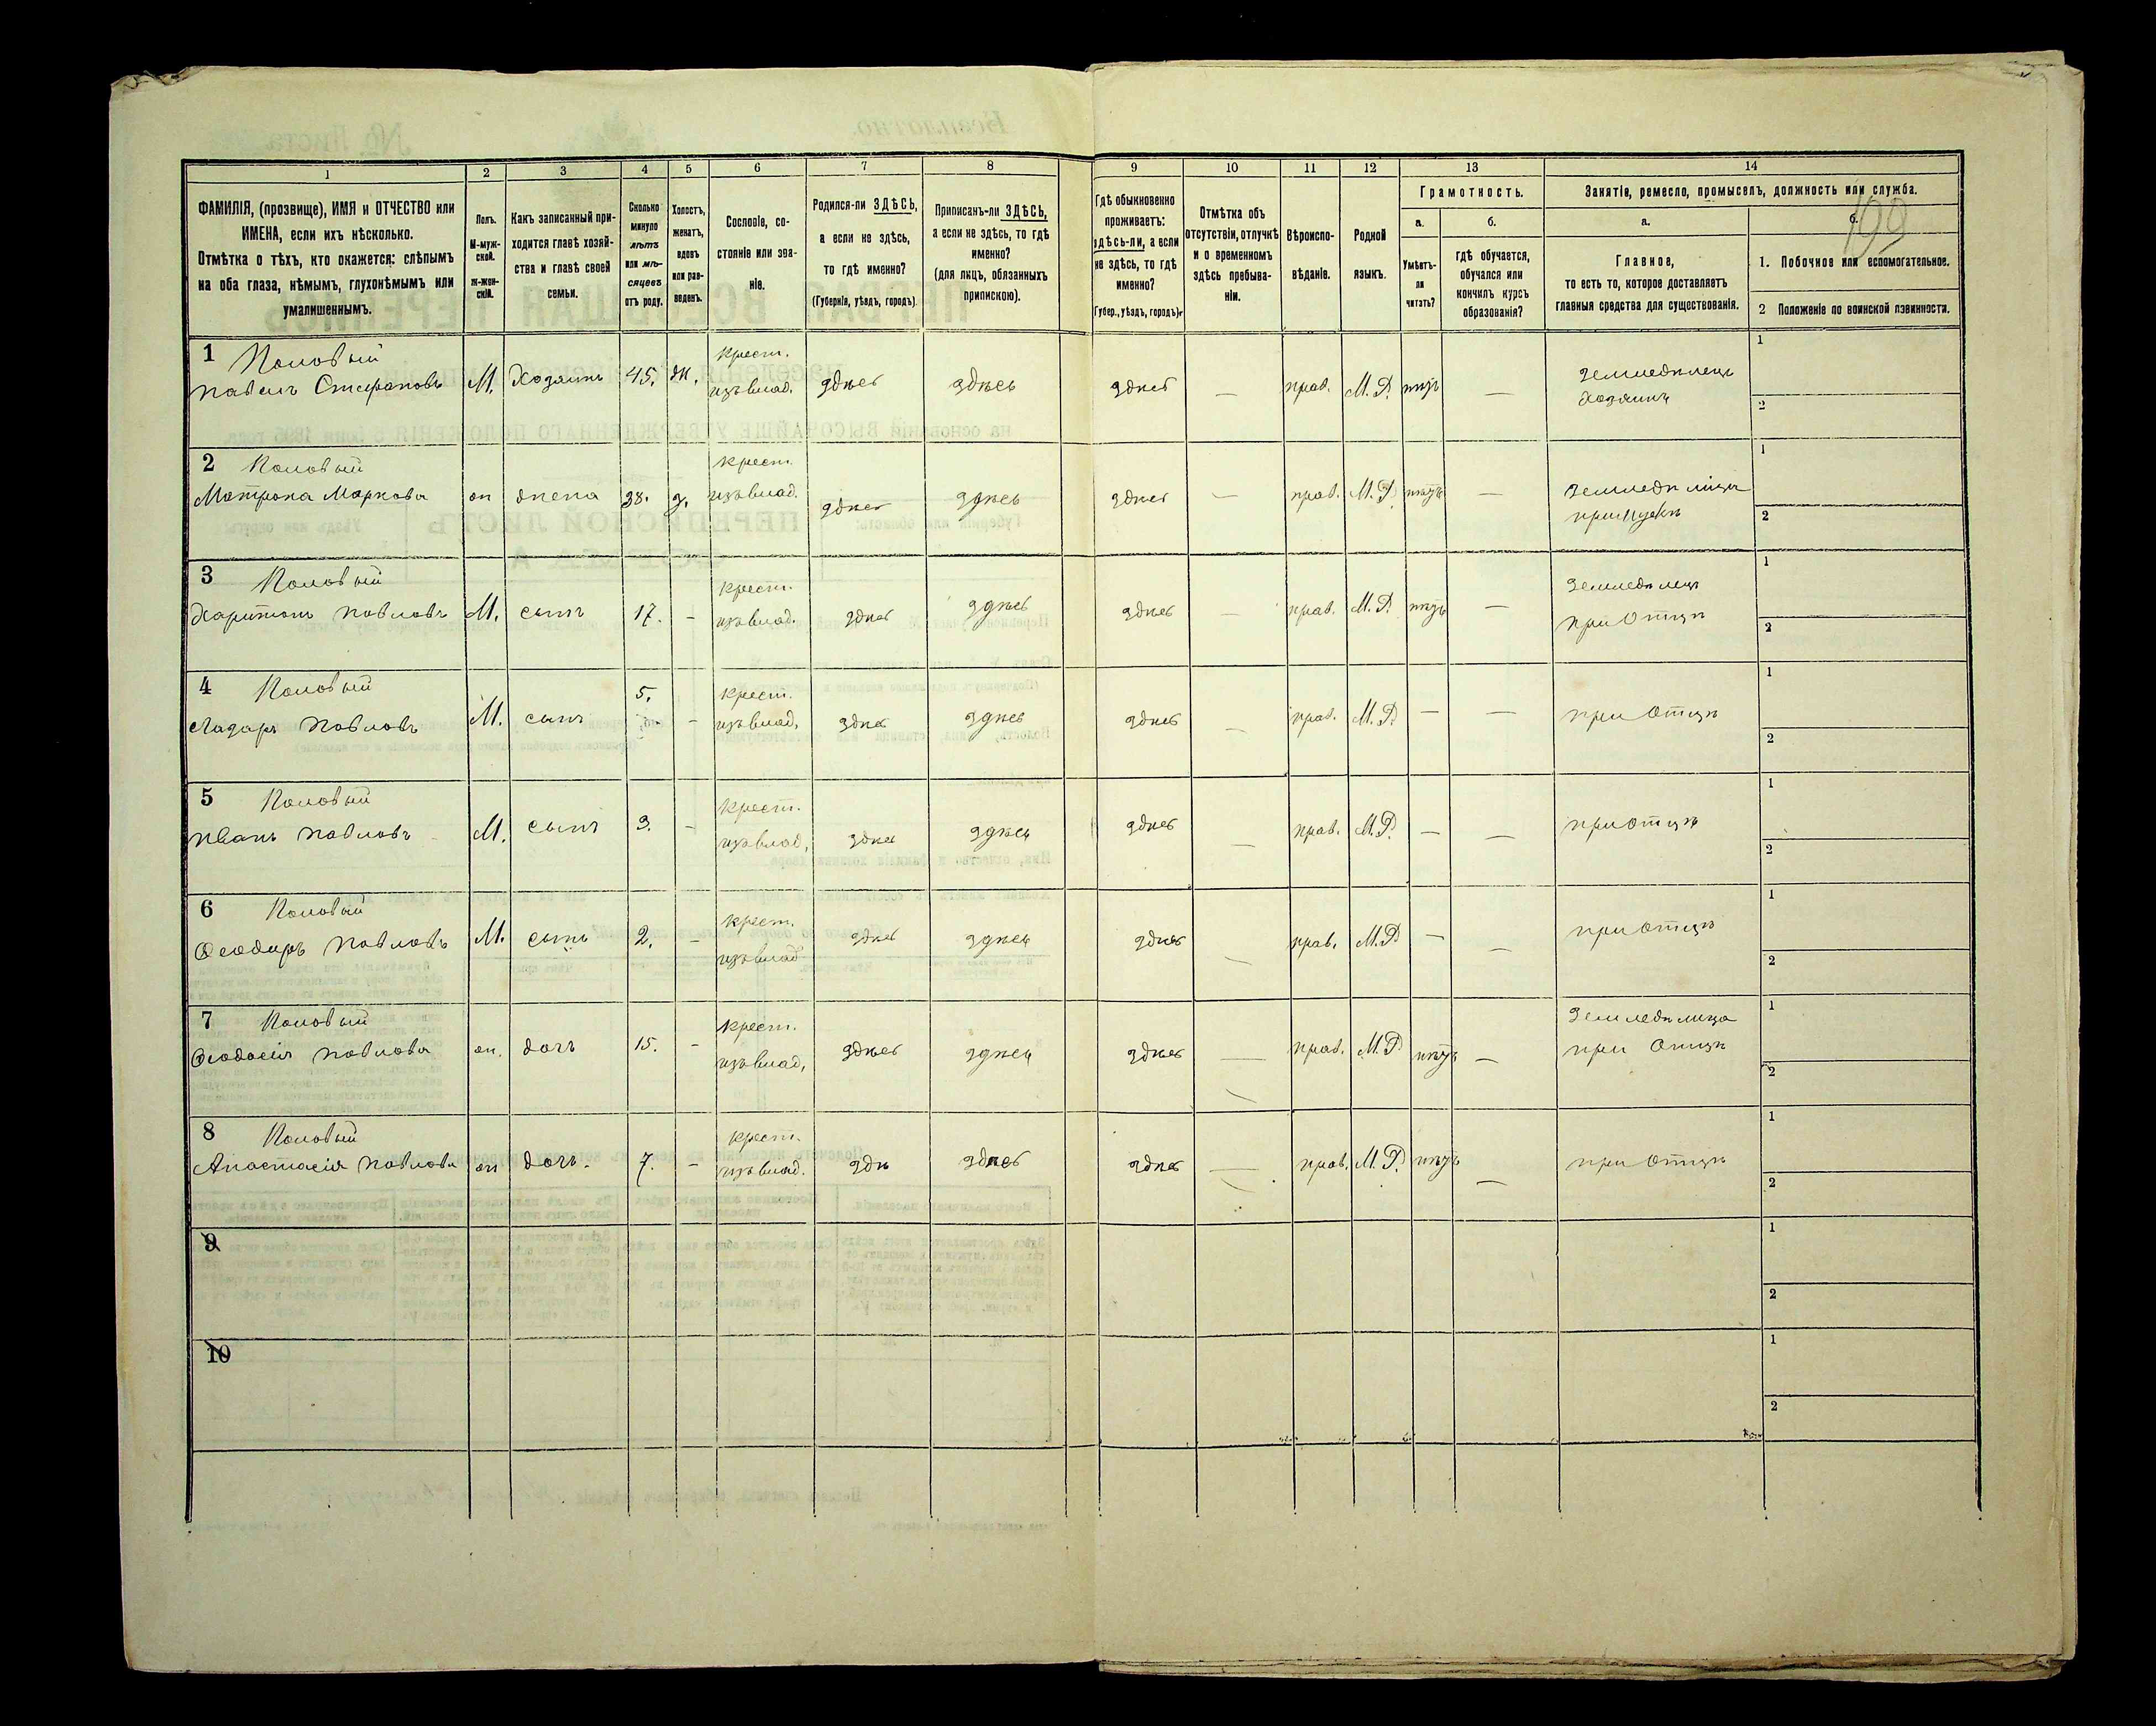 199
1 2 3 4 5 6 7 8 9 10 11 12 13 14
ФАМИЛІЯ, (прозвище), ИМЯ и ОТЧЕСТВО или
ИМЕНА, если ихъ нѣсколько.
Отмѣтка о тѣхъ, кто окажется: слѣпымъ
на оба глаза, нѣмымъ, глухонѣмымъ или
умалишеннымъ.
Полъ.
М-муж-
ской.
Ж-жен-
скій.
Какъ записанный при-
ходится главѣ хозяй-
ства и главѣ своей
семьи.
Сколько
минуло
лѣтъ
или мѣ-
сяцевъ
отъ роду.
Холостъ,
женатъ,
вдовъ
или раз-
веденъ.
Сословіе, со-
стояніе или зва-
ніе.
Родился-ли ЗДѢСЬ,
а если не здѣсь,
то гдѣ именно?
(Губернія, уѣздъ, городъ).
Приписанъ-ли ЗДѢСЬ,
а если не здѣсь, то гдѣ
именно?
(для лицъ, обязанныхъ
припискою).
Гдѣ обыкновенно
проживаетъ:
здѣсь-ли, а если
не здѣсь, то гдѣ
именно?
(Губер., уѣздъ, городъ).
Отмѣтка объ
отсутствіи, отлучкѣ
и о временномъ
здѣсь пребыва-
ніи.
Вѣроиспо-
вѣданіе.
Родной
языкъ.
Грамотность.
а.
Умѣетъ-
ли
читать?
б.
гдѣ обучается,
обучался или
кончилъ курсъ
образованія?
Занятіе, ремесло, промыселъ, должность или служба.
а.
Главное,
то есть то, которое доставляетъ
главныя средства для существованія.
б.
1. Побочное или вспомогательное.
2 Положеніе по воинской повинности.
1 Половый крест. Земледѣлецъ 1
Павелъ Стефановъ М. Хозяинъ 45. ж. изъ влад. здѣсь здѣсь здѣсь — прав. М. Р. нѣтъ — Хозяинъ 2
2 Половый крест. 1
Матрона Маркова ж жена 38. з. изъ влад. здѣсь здѣсь здѣсь — прав. М. Р. нѣтъ — Земледѣлица
при мужѣ 2
3 Половый крест. Земледѣлецъ 1
Харитонъ Павловъ М. сынъ 17. - изъ влад. здѣсь здѣсь здѣсь — прав. М. Р. нѣтъ — при Отцѣ 2
4 Половый 5. крест. 1
Лазарь Павловъ М. сынъ - изъ влад. здѣсь здѣсь здѣсь — прав. М. Р. — — при Отцѣ 2
5 Половый крест. 1
Иванъ Павловъ М. сынъ 3. - изъ влад. здѣсь здѣсь здѣсь — прав. М. Р. — — при отцѣ 2
6 Половый крест. 1
Феодоръ Павловъ М. сынъ 2. - изъ влад здѣсь здѣсь здѣсь — прав. М. Р — — при отцѣ 2
7 Половый крест. Земледѣлица 1
Феодосія Павлова ж. дочь 15. - изъ влад. здѣсь здѣсь здѣсь — прав. М. Р. нѣтъ — при Отцѣ 2
8 Половый крест. 1
Анастасія Павлова ж дочь. 7. - изъ влад. здѣ здѣсь здѣсь — прав. М. Р. нѣтъ — при Отцѣ 2
9 1
2
10 1
2